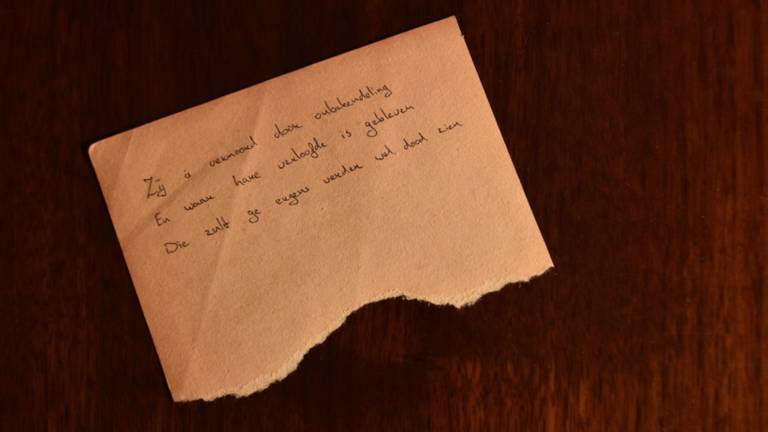 Zij is vermoord door onbekendeling
En waar hare verloofde is gebleven
Die zult ge ergens verder wel dood zien